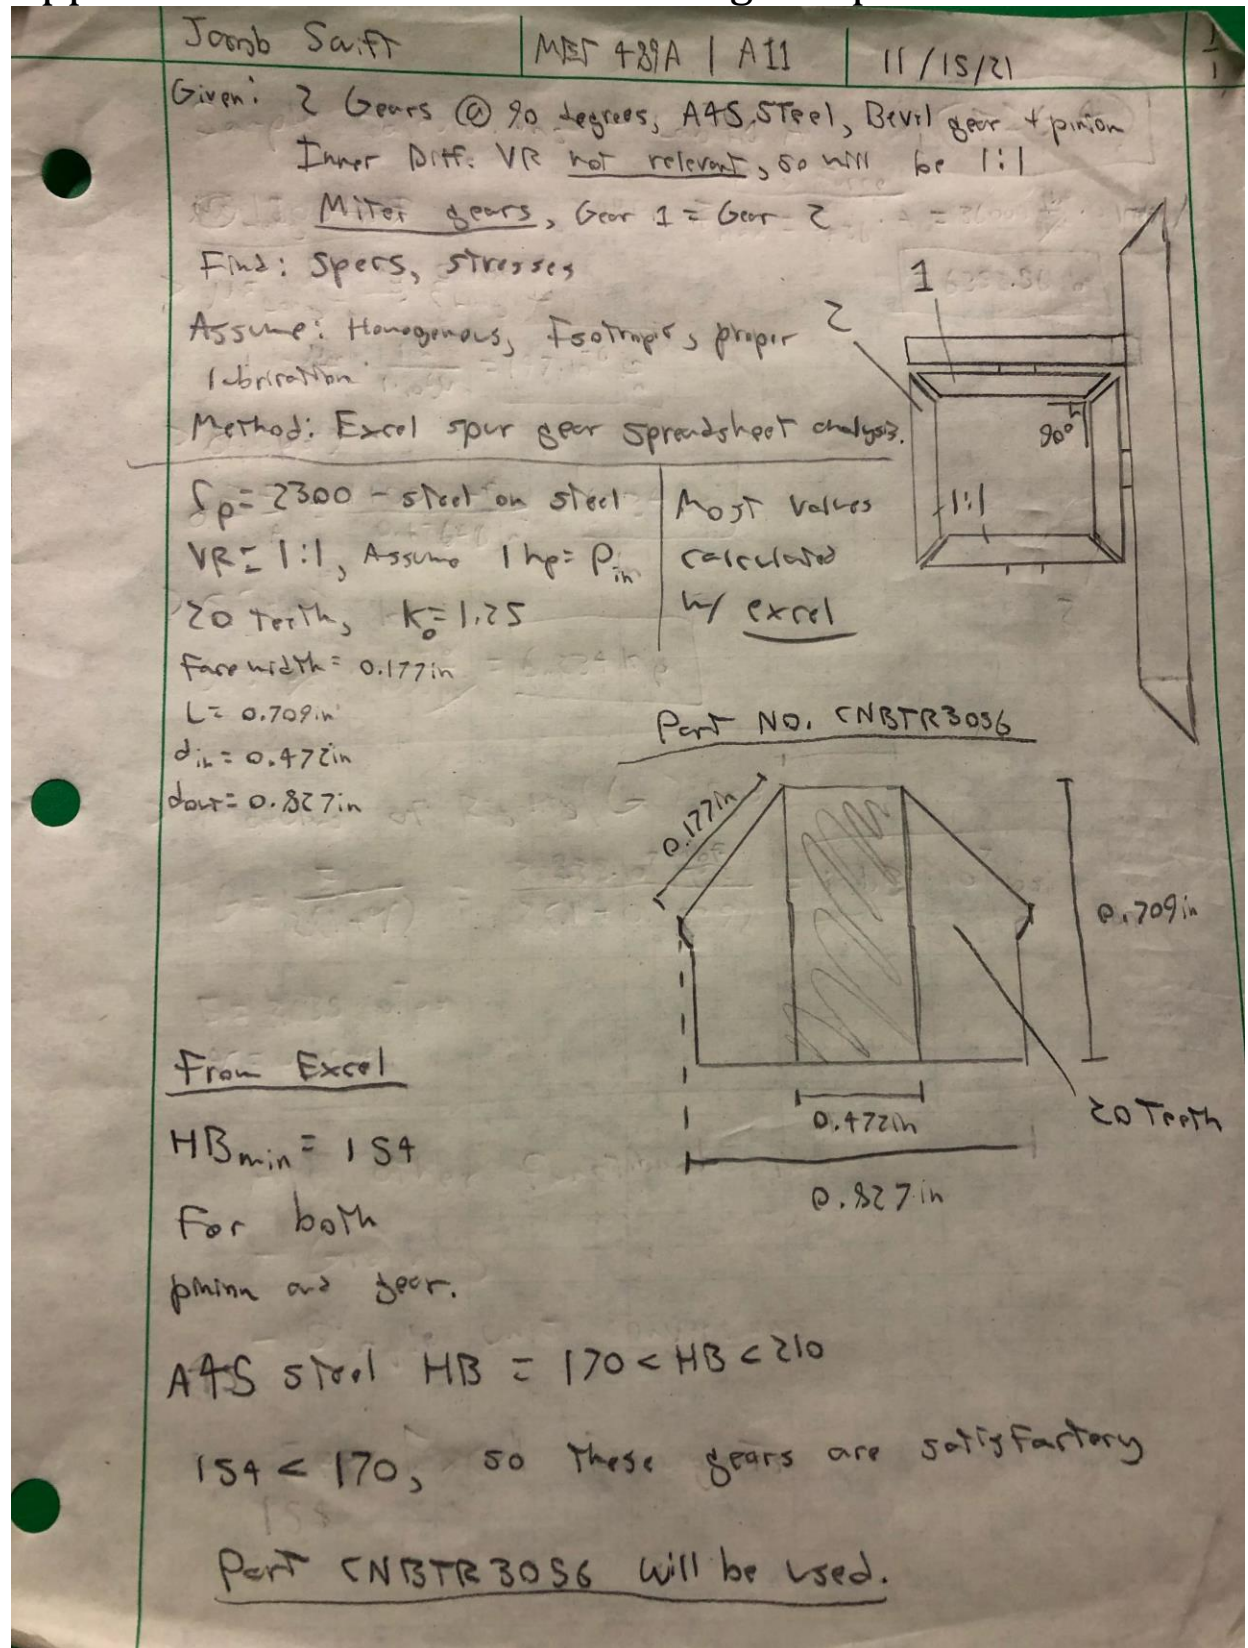 Jacob Swift
MET 489A | A11
11/15/21
1/1
Given: 2 Gears @ 90 degrees, A45 Steel, Bevil gear + pinion
Inner Diff. VR not relevant, so will be 1:1
Miter gears, Gear 1 = Gear 2
Find: Specs, stresses
Assume: Homogenous, Isotropic, proper
lubrication
Method: Excel spur gear spreadsheet analysis.
1
2
90°
1:1
Cp = 2300 - steel on steel
VR = 1:1, Assume 1 hp = Pin
20 teeth, Ko = 1.25
Face width = 0.177in
L = 0.709in
din = 0.472in
dout = 0.827in
Most values
calculated
w/ excel
Part NO. CNBTR3056
0.177in
0.709in
0.472in
20 Teeth
0.827in
From Excel
HBmin = 154
For both
pinion and gear.
A45 steel HB = 170 < HB < 210
154 < 170, so these gears are satisfactory
Part CNBTR3056 will be used.